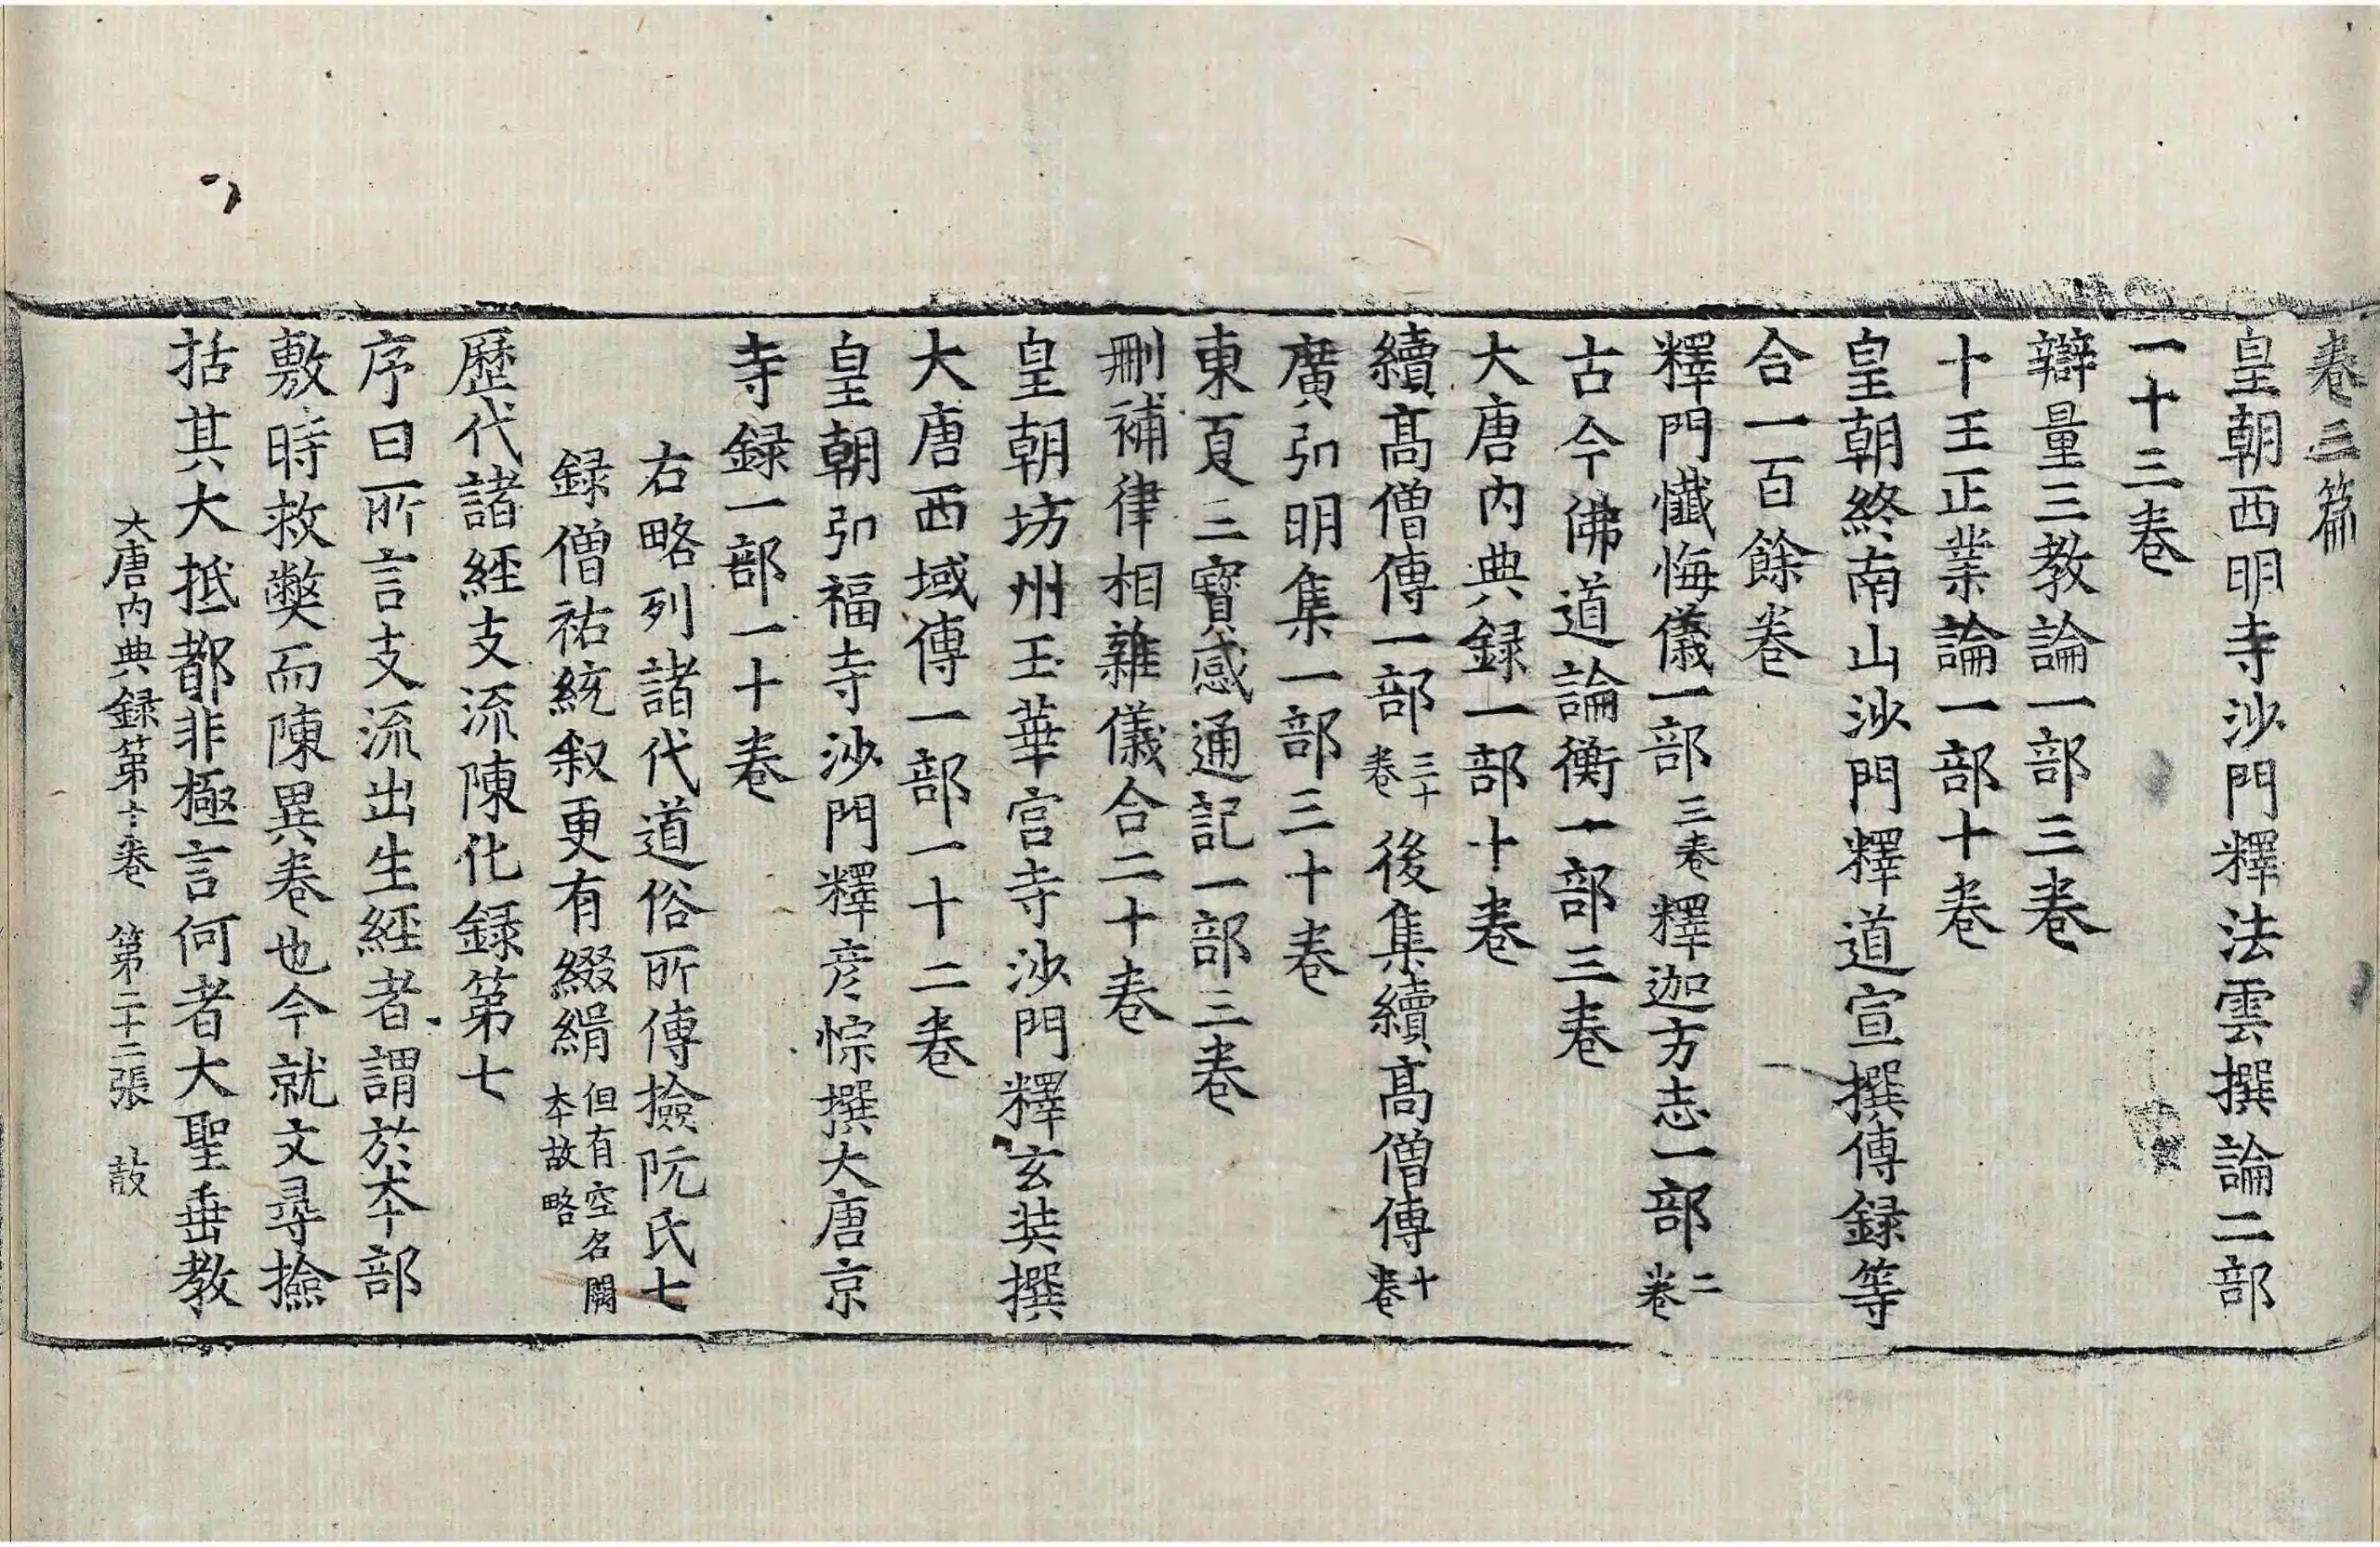 卷三篇
皇朝西明寺沙門釋法雲撰論二部
一十三卷
辯量三教論一部三卷
十王正業論一部十卷
皇朝終南山沙門釋道宣撰傳録等
合一百餘卷
釋門懺悔儀一部三卷釋迦方志一部二卷
古今佛道論衡一部三卷
大唐内典録一部十卷
續髙僧傳一部三十卷後集續髙僧傳十卷
廣弘明集一部三十卷
東夏三寶感通記一部三卷
刪補律相雜儀合二十卷
皇朝坊州玉華宫寺沙門釋玄奘撰
大唐西域傳一部一十二卷
皇朝弘福寺沙門釋彦悰撰大唐京
寺録一部一十卷
右略列諸代道俗所傳撿阮氏七
録僧祐統叙更有綴緝但有空名闕本故略
歷代諸經支流陳化録第七
序曰所言支流出生經者謂於本部
敷時救獘而陳異卷也今就文尋撿
括其大抵都非極言何者大聖垂教
大唐内典録第十卷 第二十二張 㪉